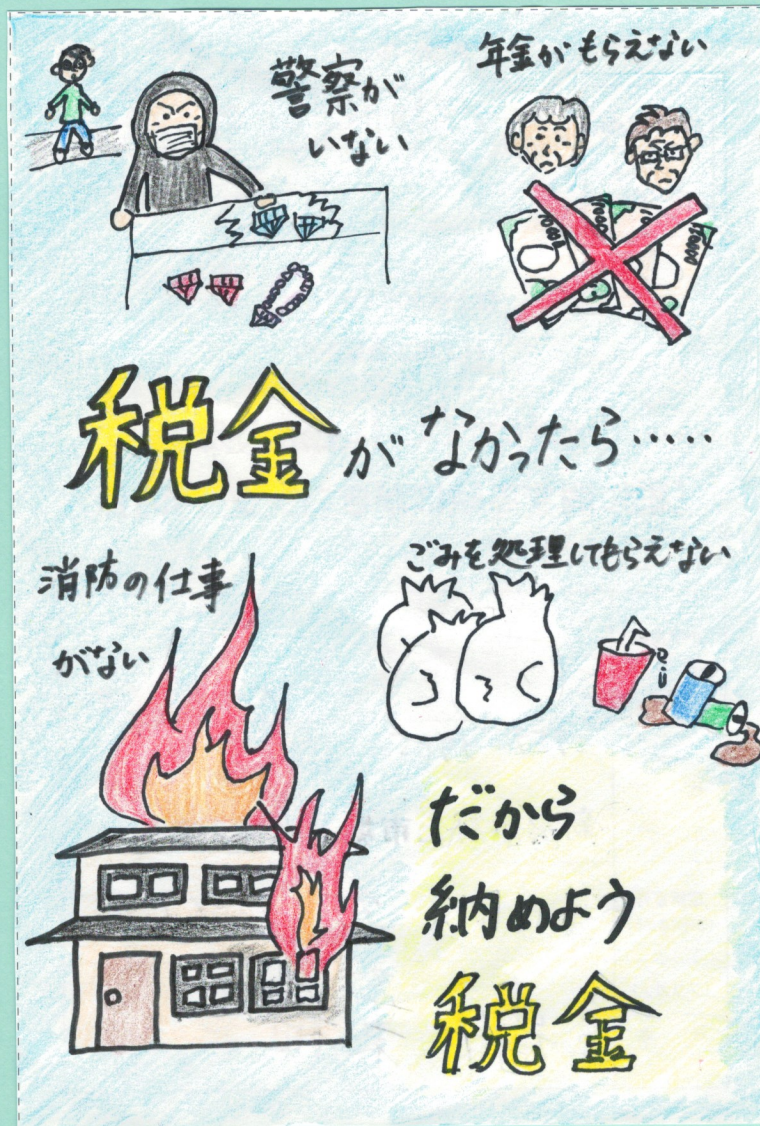 警察が
いない
年金がもらえない
税金がなかったら・・・・・
消防の仕事
がない
ごみを処理してもらえない
だから
納めよう
税金